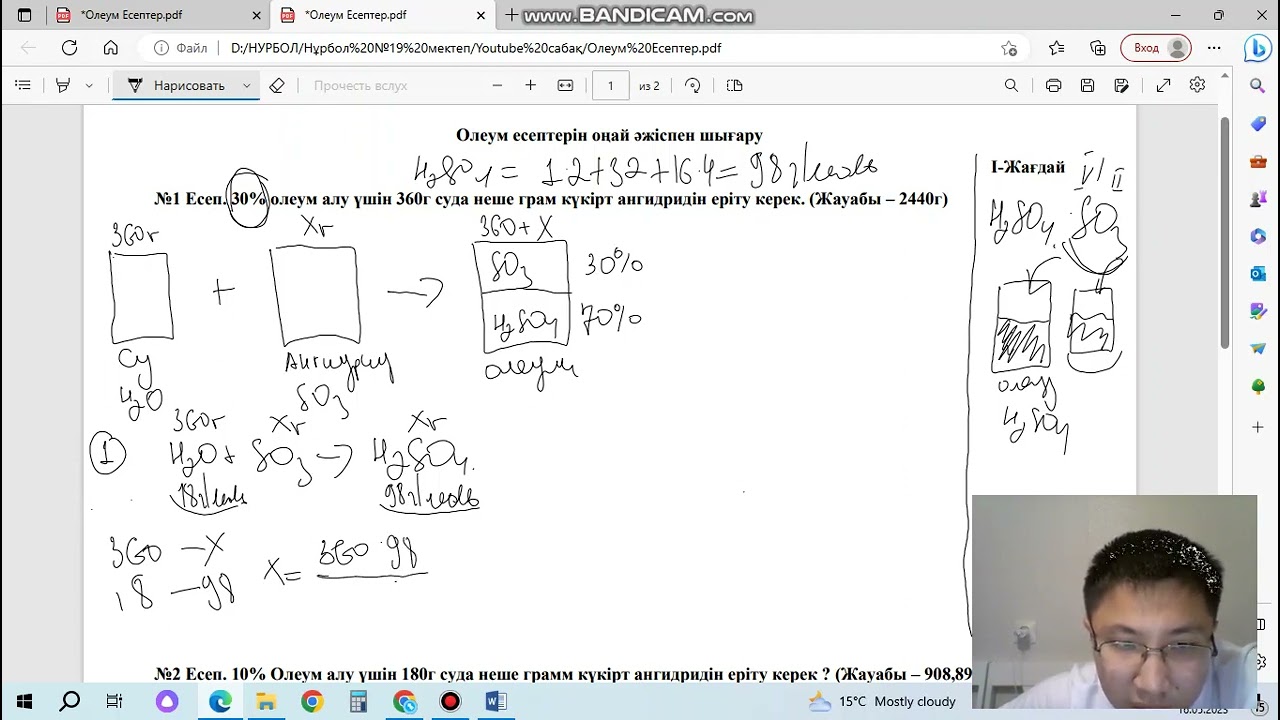 *Олеум Есептер.pdf
*Олеум Есептер.pdf
www.BANDICAM.com
Файл
D:/НУРБОЛ/Нұрбол%20№19%20мектеп/Youtube%20сабақ/Олеум%20Есептер.pdf
Вход
Нарисовать
Прочесть вслух
1
из 2
Олеум есептерін оңай әжіспен шығару
H2SO4 = 1·2+32+16·4= 98г/моль
І-Жағдай
VI II
№1 Есеп. 30% олеум алу үшін 360г суда неше грам күкірт ангидридін еріту керек. (Жауабы – 2440г)
H2SO4 · SO3
360г
Xг
360+X
+
→
SO3 30%
H2SO4 70%
Су
Ангидрид
олеум
H2O
SO3
олеу
H2SO4
360г Xг Xг
1 H2O + SO3 → H2SO4
18г/моль 98г/моль
360 – X
X= 360·98
18 – 98
№2 Есеп. 10% Олеум алу үшін 180г суда неше грамм күкірт ангидридін еріту керек ? (Жауабы – 908,89
15°C Mostly cloudy
16.05.2023